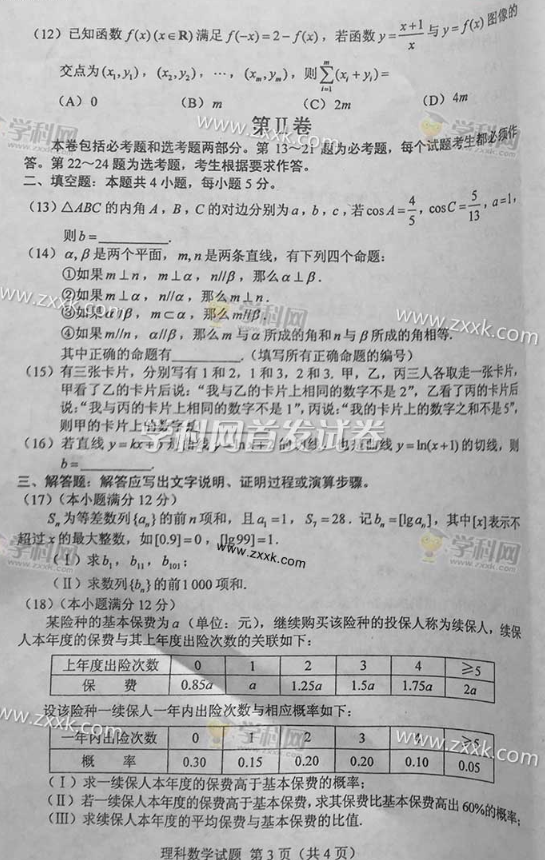 (12) 已知函数 f(x)(x∈R) 满足 f(-x)=2-f(x)，若函数 y=(x+1)/x 与 y=f(x) 图像的
交点为 (x₁,y₁)，(x₂,y₂)，…，(xₘ,yₘ)，则 ∑_{i=1}^{m}(xᵢ+yᵢ)=
(A) 0 (B) m (C) 2m (D) 4m
第Ⅱ卷
本卷包括必考题和选考题两部分。第 13～21 题为必考题，每个试题考生都必须作
答。第 22～24 题为选考题，考生根据要求作答。
二、填空题：本题共 4 小题，每小题 5 分。
(13) △ABC 的内角 A，B，C 的对边分别为 a，b，c，若 cos A=4/5，cos C=5/13，a=1，
则 b=________.
(14) α,β 是两个平面，m,n 是两条直线，有下列四个命题：
①如果 m⊥n，m⊥α，n//β，那么 α⊥β.
②如果 m⊥α，n//α，那么 m⊥n.
③如果 α//β，m⊂α，那么 m//β.
④如果 m//n，α//β，那么 m 与 α 所成的角和 n 与 β 所成的角相等.
其中正确的命题有________.（填写所有正确命题的编号）
(15) 有三张卡片，分别写有 1 和 2，1 和 3，2 和 3. 甲，乙，丙三人各取走一张卡片，
甲看了乙的卡片后说：“我与乙的卡片上相同的数字不是 2”，乙看了丙的卡片后
说：“我与丙的卡片上相同的数字不是 1”，丙说：“我的卡片上的数字之和不是5”，
则甲的卡片上的数字是
(16) 若直线 y=kx+b 是曲线 y=ln x+2 的切线，也是曲线 y=ln(x+1) 的切线，则
b=________.
三、解答题：解答应写出文字说明、证明过程或演算步骤。
(17)（本小题满分 12 分）
Sₙ 为等差数列 {aₙ} 的前 n 项和，且 a₁=1，S₇=28. 记 bₙ=[lg aₙ]，其中 [x] 表示不
超过 x 的最大整数，如 [0.9]=0，[lg99]=1.
(Ⅰ) 求 b₁，b₁₁，b₁₀₁；
(Ⅱ) 求数列 {bₙ} 的前 1 000 项和.
(18)（本小题满分 12 分）
某险种的基本保费为 a（单位：元），继续购买该险种的投保人称为续保人，续保
人本年度的保费与其上年度出险次数的关联如下：
上年度出险次数 0 1 2 3 4 ≥5
保 费 0.85a a 1.25a 1.5a 1.75a 2a
设该险种一续保人一年内出险次数与相应概率如下：
一年内出险次数 0 1 2 3 4 ≥5
概 率 0.30 0.15 0.20 0.20 0.10 0.05
(Ⅰ) 求一续保人本年度的保费高于基本保费的概率；
(Ⅱ) 若一续保人本年度的保费高于基本保费，求其保费比基本保费高出 60%的概率；
(Ⅲ) 求续保人本年度的平均保费与基本保费的比值.
理科数学试题 第 3 页（共 4 页）
学科网
www.zxxk.com
学科网首发试卷